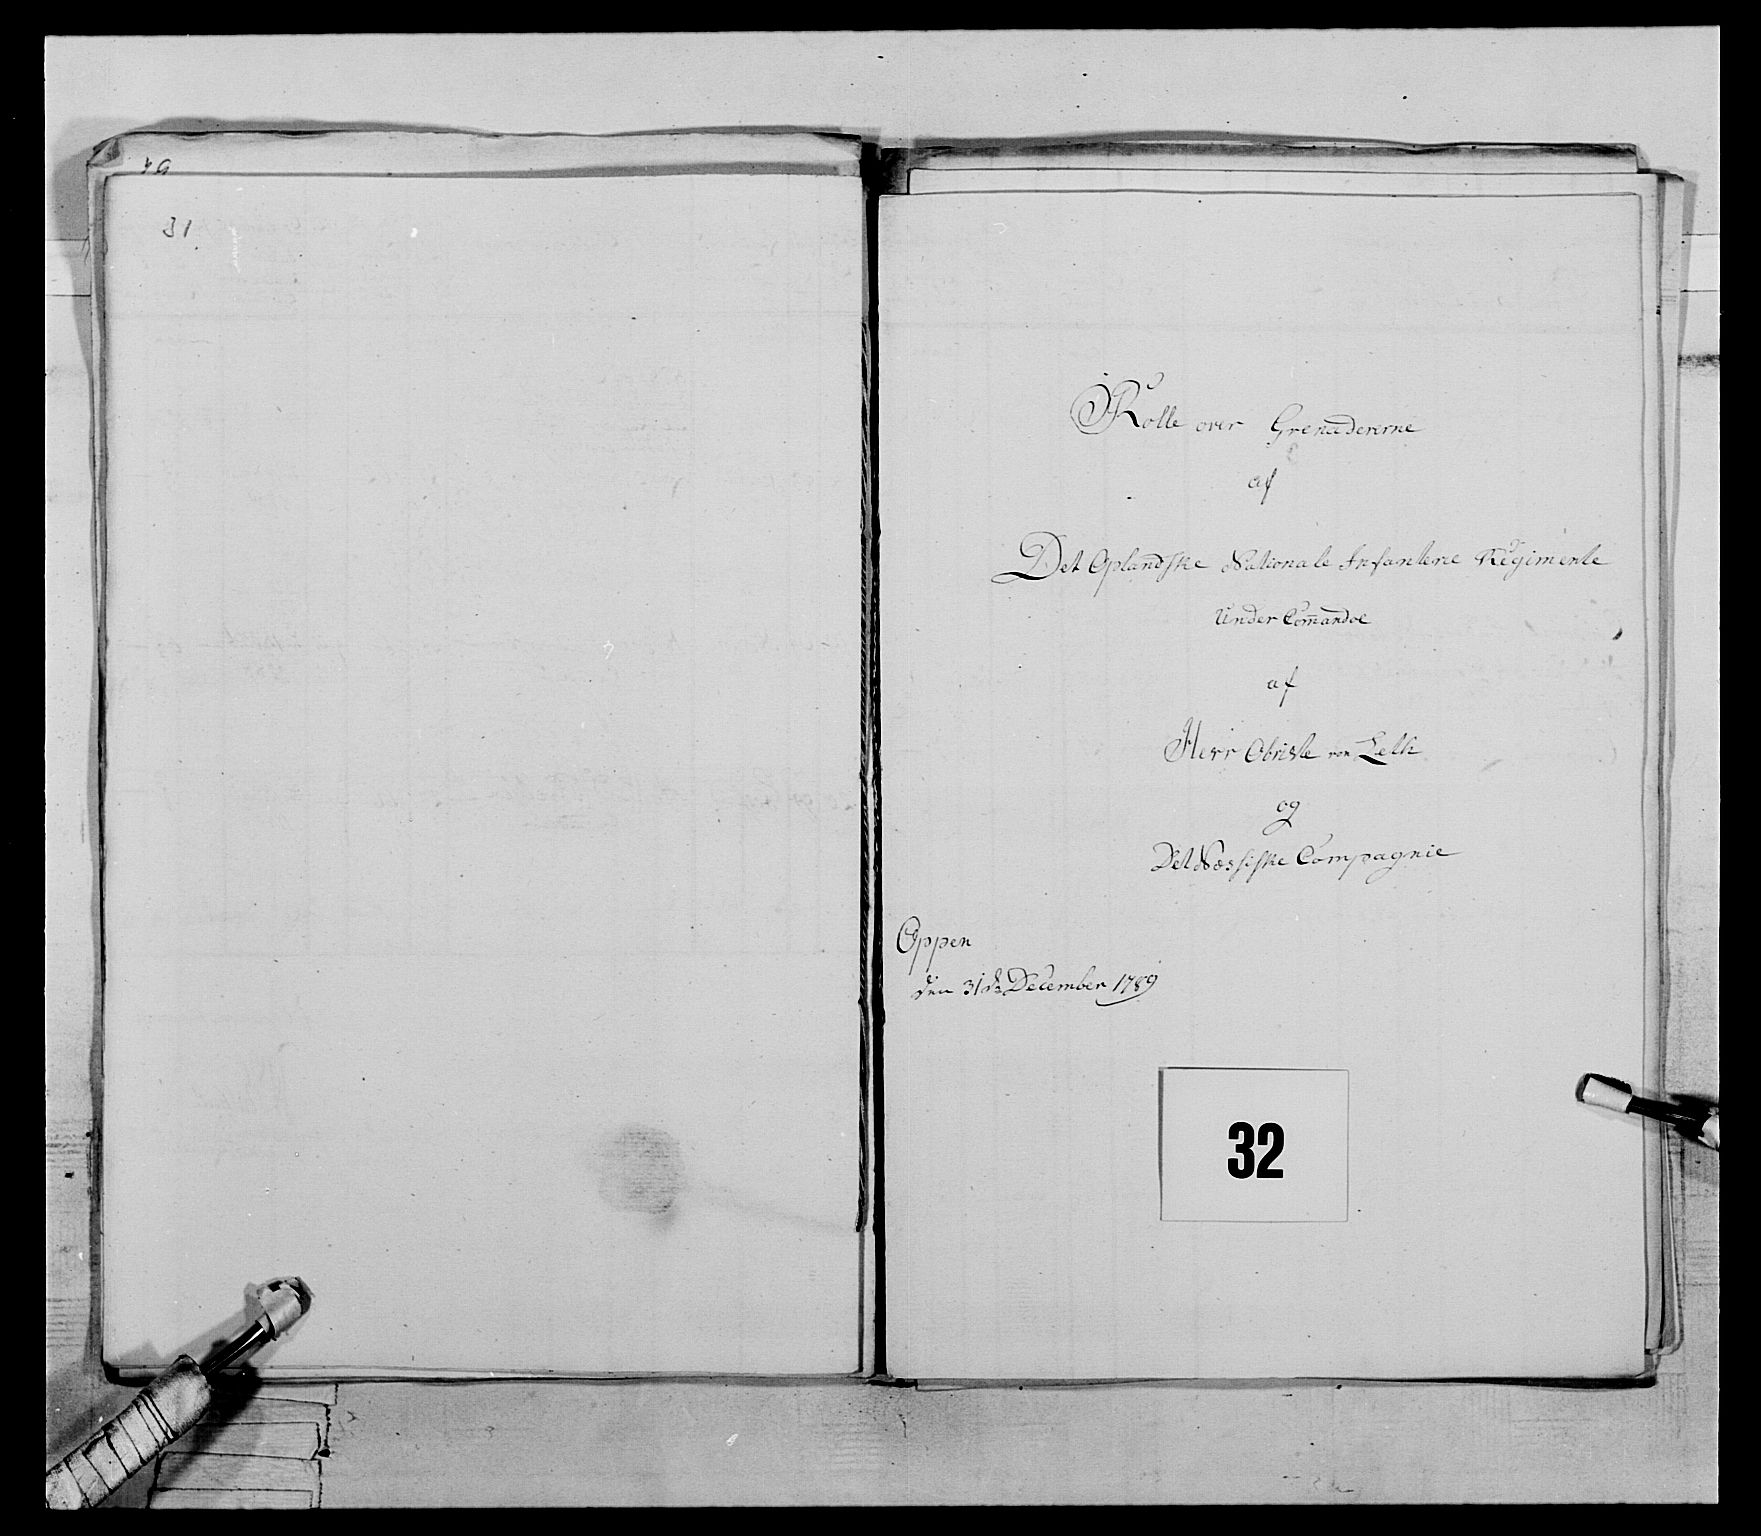 31.
Rolle over Grenadererne
af
Det Oplandske Nationale Infanterie Regimente
Under Com̄andoe
af
Herr Obriste von
og
Det Næssiske Compagnie
Oppen
den 31de December 1789
32